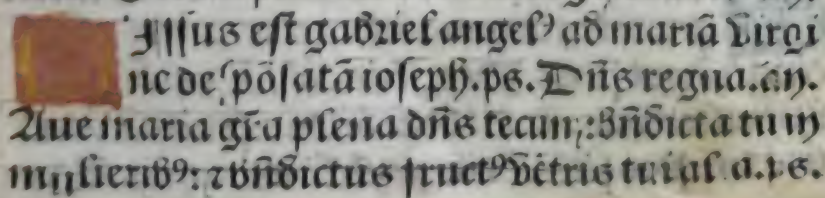 Issus est gabriel angelꝰ ad mariã virgi
ne despõsatã ioseph. ps. Dñs regna. añ.
Aue maria gr̃a plena dñs tecum: bñdicta tu in
mulieribꝰ: ⁊ bñdictus fructꝰ vẽtris tui al a. ps.